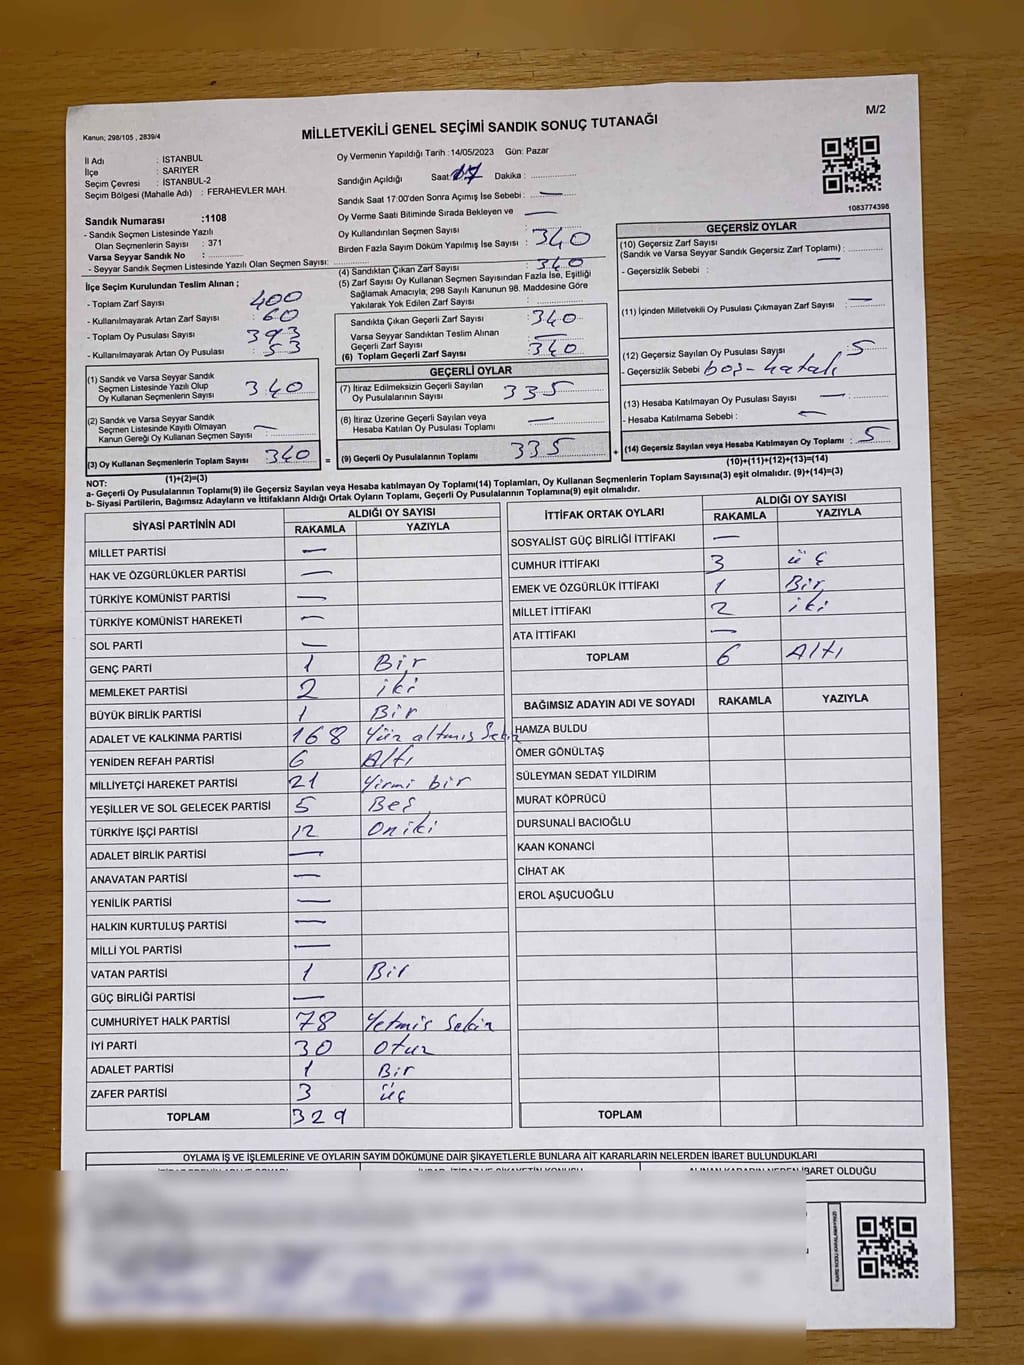 Kanun; 298/105 , 2839/4
M/2
MİLLETVEKİLİ GENEL SEÇİMİ SANDIK SONUÇ TUTANAĞI
İl Adı : İSTANBUL
İlçe : SARIYER
Seçim Çevresi : İSTANBUL-2
Seçim Bölgesi (Mahalle Adı) : FERAHEVLER MAH.
Sandık Numarası :1108
- Sandık Seçmen Listesinde Yazılı
Olan Seçmenlerin Sayısı : 371
Varsa Seyyar Sandık No :
- Seyyar Sandık Seçmen Listesinde Yazılı Olan Seçmen Sayısı:
İlçe Seçim Kurulundan Teslim Alınan ;
- Toplam Zarf Sayısı : 400
- Kullanılmayarak Artan Zarf Sayısı : 60
- Toplam Oy Pusulası Sayısı : 393
- Kullanılmayarak Artan Oy Pusulası : 53
(1) Sandık ve Varsa Seyyar Sandık
Seçmen Listesinde Yazılı Olup
Oy Kullanan Seçmenlerin Sayısı : 340
(2) Sandık ve Varsa Seyyar Sandık
Seçmen Listesinde Kayıtlı Olmayan
Kanun Gereği Oy Kullanan Seçmen Sayısı : —
(3) Oy Kullanan Seçmenlerin Toplam Sayısı : 340
(1)+(2)=(3)
Oy Vermenin Yapıldığı Tarih :14/05/2023 Gün: Pazar
Sandığın Açıldığı Saat: 17 Dakika :
Sandık Saat 17:00'den Sonra Açımış İse Sebebi : —
Oy Verme Saati Bitiminde Sırada Bekleyen ve —
Oy Kullandırılan Seçmen Sayısı :
Birden Fazla Sayım Döküm Yapılmış İse Sayısı : 340
(4) Sandıktan Çıkan Zarf Sayısı : 340
(5) Zarf Sayısı Oy Kullanan Seçmen Sayısından Fazla İse, Eşitliği
Sağlamak Amacıyla, 298 Sayılı Kanunun 98. Maddesine Göre
Yakılarak Yok Edilen Zarf Sayısı :
Sandıkta Çıkan Geçerli Zarf Sayısı : 340
Varsa Seyyar Sandıktan Teslim Alınan
Geçerli Zarf Sayısı : —
(6) Toplam Geçerli Zarf Sayısı : 340
GEÇERLİ OYLAR
(7) İtiraz Edilmeksizin Geçerli Sayılan
Oy Pusulalarının Sayısı : 335
(8) İtiraz Üzerine Geçerli Sayılan veya
Hesaba Katılan Oy Pusulası Toplamı : —
= (9) Geçerli Oy Pusulalarının Toplamı : 335
1083774398
GEÇERSİZ OYLAR
(10) Geçersiz Zarf Sayısı
(Sandık ve Varsa Seyyar Sandık Geçersiz Zarf Toplamı) : —
- Geçersizlik Sebebi :
(11) İçinden Milletvekili Oy Pusulası Çıkmayan Zarf Sayısı : —
(12) Geçersiz Sayılan Oy Pusulası Sayısı : 5
- Geçersizlik Sebebi : boş-hatalı
(13) Hesaba Katılmayan Oy Pusulası Sayısı : —
- Hesaba Katılmama Sebebi : —
+ (14) Geçersiz Sayılan veya Hesaba Katılmayan Oy Toplamı : 5
(10)+(11)+(12)+(13)=(14)
NOT:
a- Geçerli Oy Pusulalarının Toplamı(9) ile Geçersiz Sayılan veya Hesaba katılmayan Oy Toplamı(14) Toplamları, Oy Kullanan Seçmenlerin Toplam Sayısına(3) eşit olmalıdır. (9)+(14)=(3)
b- Siyasi Partilerin, Bağımsız Adayların ve İttifakların Aldığı Ortak Oyların Toplamı, Geçerli Oy Pusulalarının Toplamına(9) eşit olmalıdır.
SİYASİ PARTİNİN ADI ALDIĞI OY SAYISI
RAKAMLA YAZIYLA
MİLLET PARTİSİ —
HAK VE ÖZGÜRLÜKLER PARTİSİ —
TÜRKİYE KOMÜNİST PARTİSİ —
TÜRKİYE KOMÜNİST HAREKETİ —
SOL PARTİ —
GENÇ PARTİ 1 Bir
MEMLEKET PARTİSİ 2 iki
BÜYÜK BİRLİK PARTİSİ 1 Bir
ADALET VE KALKINMA PARTİSİ 168 Yüz altmış Sekiz
YENİDEN REFAH PARTİSİ 6 Altı
MİLLİYETÇİ HAREKET PARTİSİ 21 Yirmi bir
YEŞİLLER VE SOL GELECEK PARTİSİ 5 Beş
TÜRKİYE İŞÇİ PARTİSİ 12 Oniki
ADALET BİRLİK PARTİSİ —
ANAVATAN PARTİSİ —
YENİLİK PARTİSİ —
HALKIN KURTULUŞ PARTİSİ —
MİLLİ YOL PARTİSİ —
VATAN PARTİSİ 1 Bir
GÜÇ BİRLİĞİ PARTİSİ —
CUMHURİYET HALK PARTİSİ 78 Yetmis Sekiz
İYİ PARTİ 30 Otuz
ADALET PARTİSİ 1 Bir
ZAFER PARTİSİ 3 üç
TOPLAM 329
İTTİFAK ORTAK OYLARI ALDIĞI OY SAYISI
RAKAMLA YAZIYLA
SOSYALİST GÜÇ BİRLİĞİ İTTİFAKI —
CUMHUR İTTİFAKI 3 üç
EMEK VE ÖZGÜRLÜK İTTİFAKI 1 Bir
MİLLET İTTİFAKI 2 iki
ATA İTTİFAKI —
TOPLAM 6 Altı
BAĞIMSIZ ADAYIN ADI VE SOYADI RAKAMLA YAZIYLA
HAMZA BULDU
ÖMER GÖNÜLTAŞ
SÜLEYMAN SEDAT YILDIRIM
MURAT KÖPRÜCÜ
DURSUNALİ BACIOĞLU
KAAN KONANCİ
CİHAT AK
EROL AŞUCUOĞLU
TOPLAM
OYLAMA İŞ VE İŞLEMLERİNE VE OYLARIN SAYIM DÖKÜMÜNE DAİR ŞİKAYETLERLE BUNLARA AİT KARARLARIN NELERDEN İBARET BULUNDUKLARI
ALINAN KARARIN NEDEN İBARET OLDUĞU